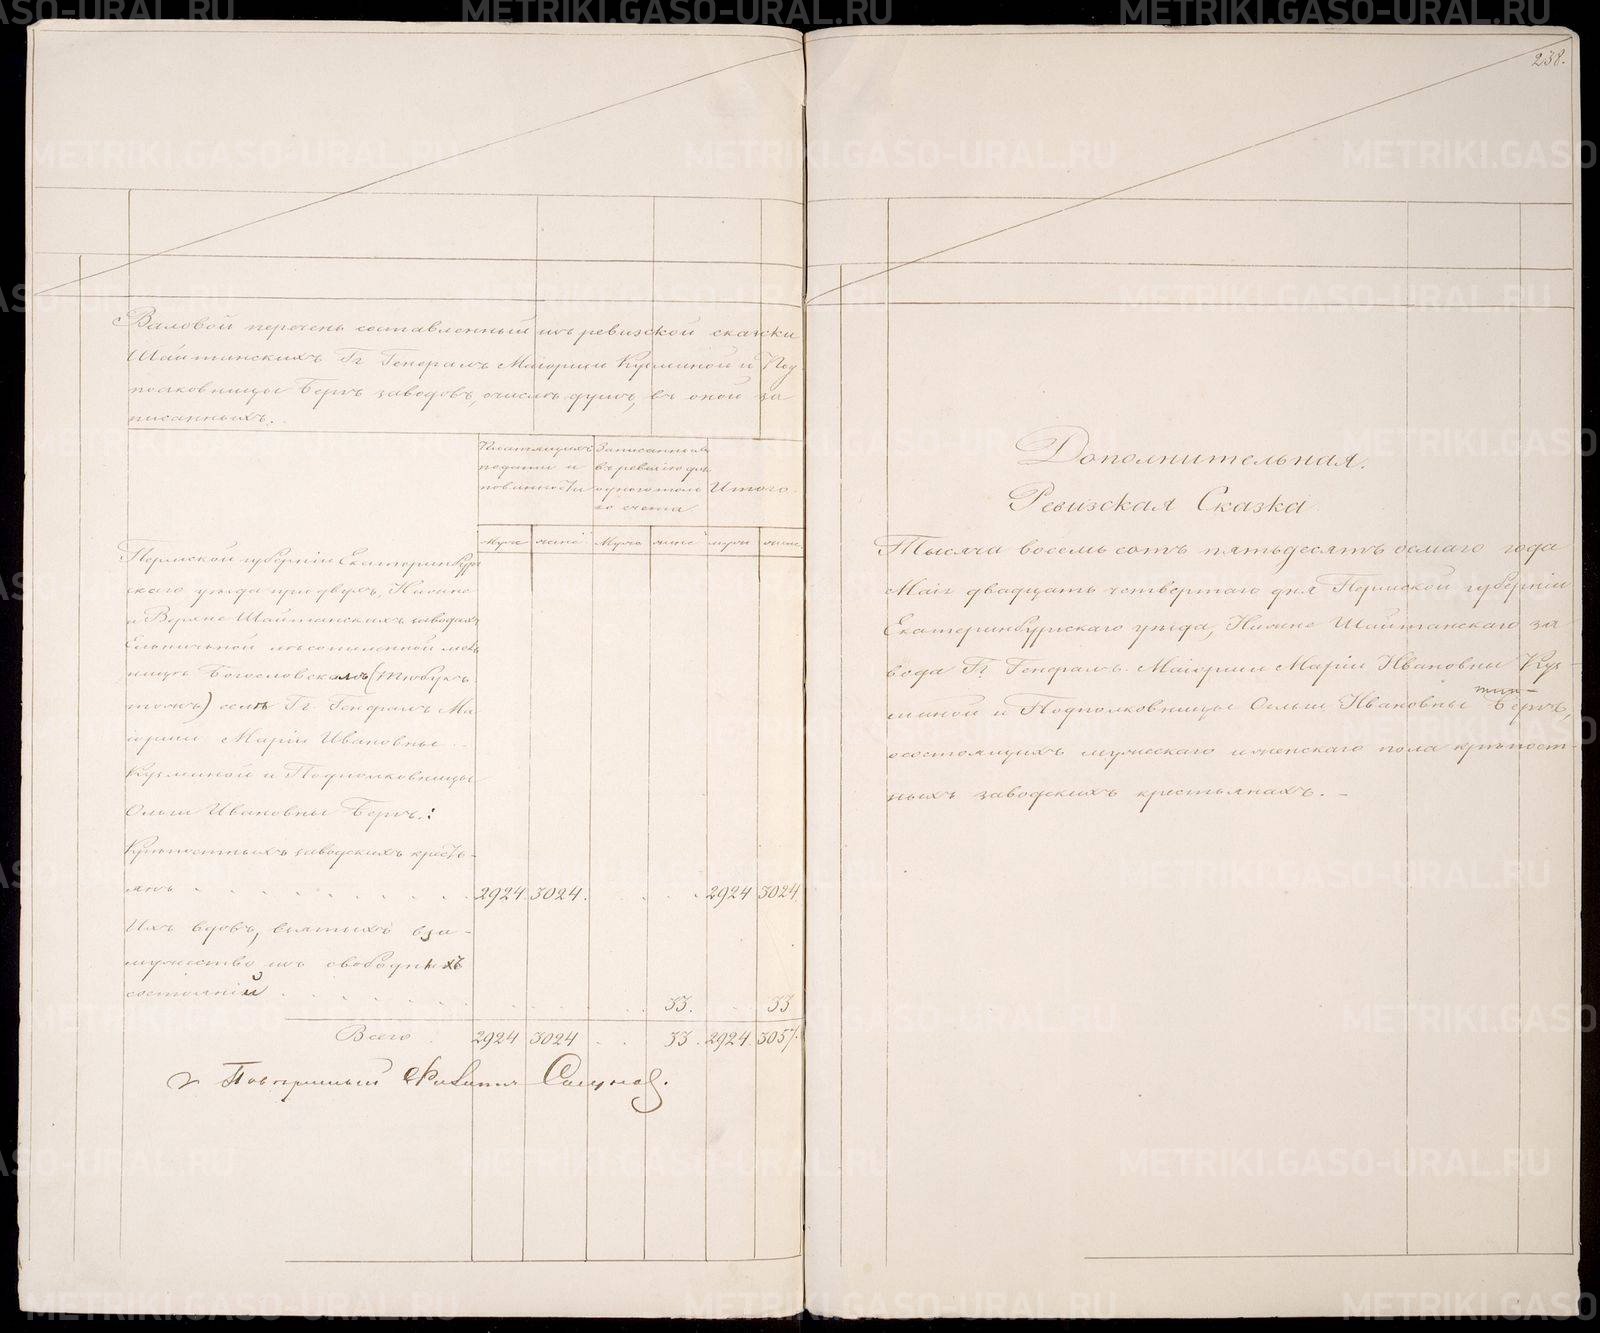 Валовой перечень составленный изъ ревизской сказки
Шайтанскихъ Гг Генералъ Маіорши Кузминой и Под
полковницы Бергъ заводовъ, о числѣ душъ, въ оной за
писанныхъ.
Платящихъ
подати и
повинности
Записанныхъ
въ ревизію для
одного толь
ко счета
Итого
муж: женс: Муж: женс: муж: женс:
Пермской губерніи Екатеринбург
скаго уѣзда при двухъ, Нижне
и Верхне Шайтанскихъ заводахъ
мель
ницѣ Богословскомъ (Талица
селѣ Гг. Генералъ Ма
іорши Маріи Ивановны
Кузминой и Подполковницы
Ольги Ивановны Бергъ:
Крѣпостныхъ заводскихъ кресть-
янъ 2924 3024. 2924 3024.
Ихъ вдовъ, взятыхъ въ за-
мужество изъ свободныхъ
состояній 33. 33
Всего 2924 3024 33. 2924. 3057.
Повѣренный
238.
Дополнительная.
Ревизская Сказка
Тысяча восемь сотъ пятьдесятъ осмаго года
Маія двадцать четвертаго дня Пермской губерніи
Екатеринбургскаго уѣзда, Нижне Шайтанскаго за
вода Гг Генералъ-Маіорши Маріи Ивановны Куз-
миной и Подполковницы Ольги Ивановны Бергъ,
о состоящихъ мужескаго и женскаго пола крѣпост-
ныхъ заводскихъ крестьянахъ. –
METRIKI.GASO-URAL.RU